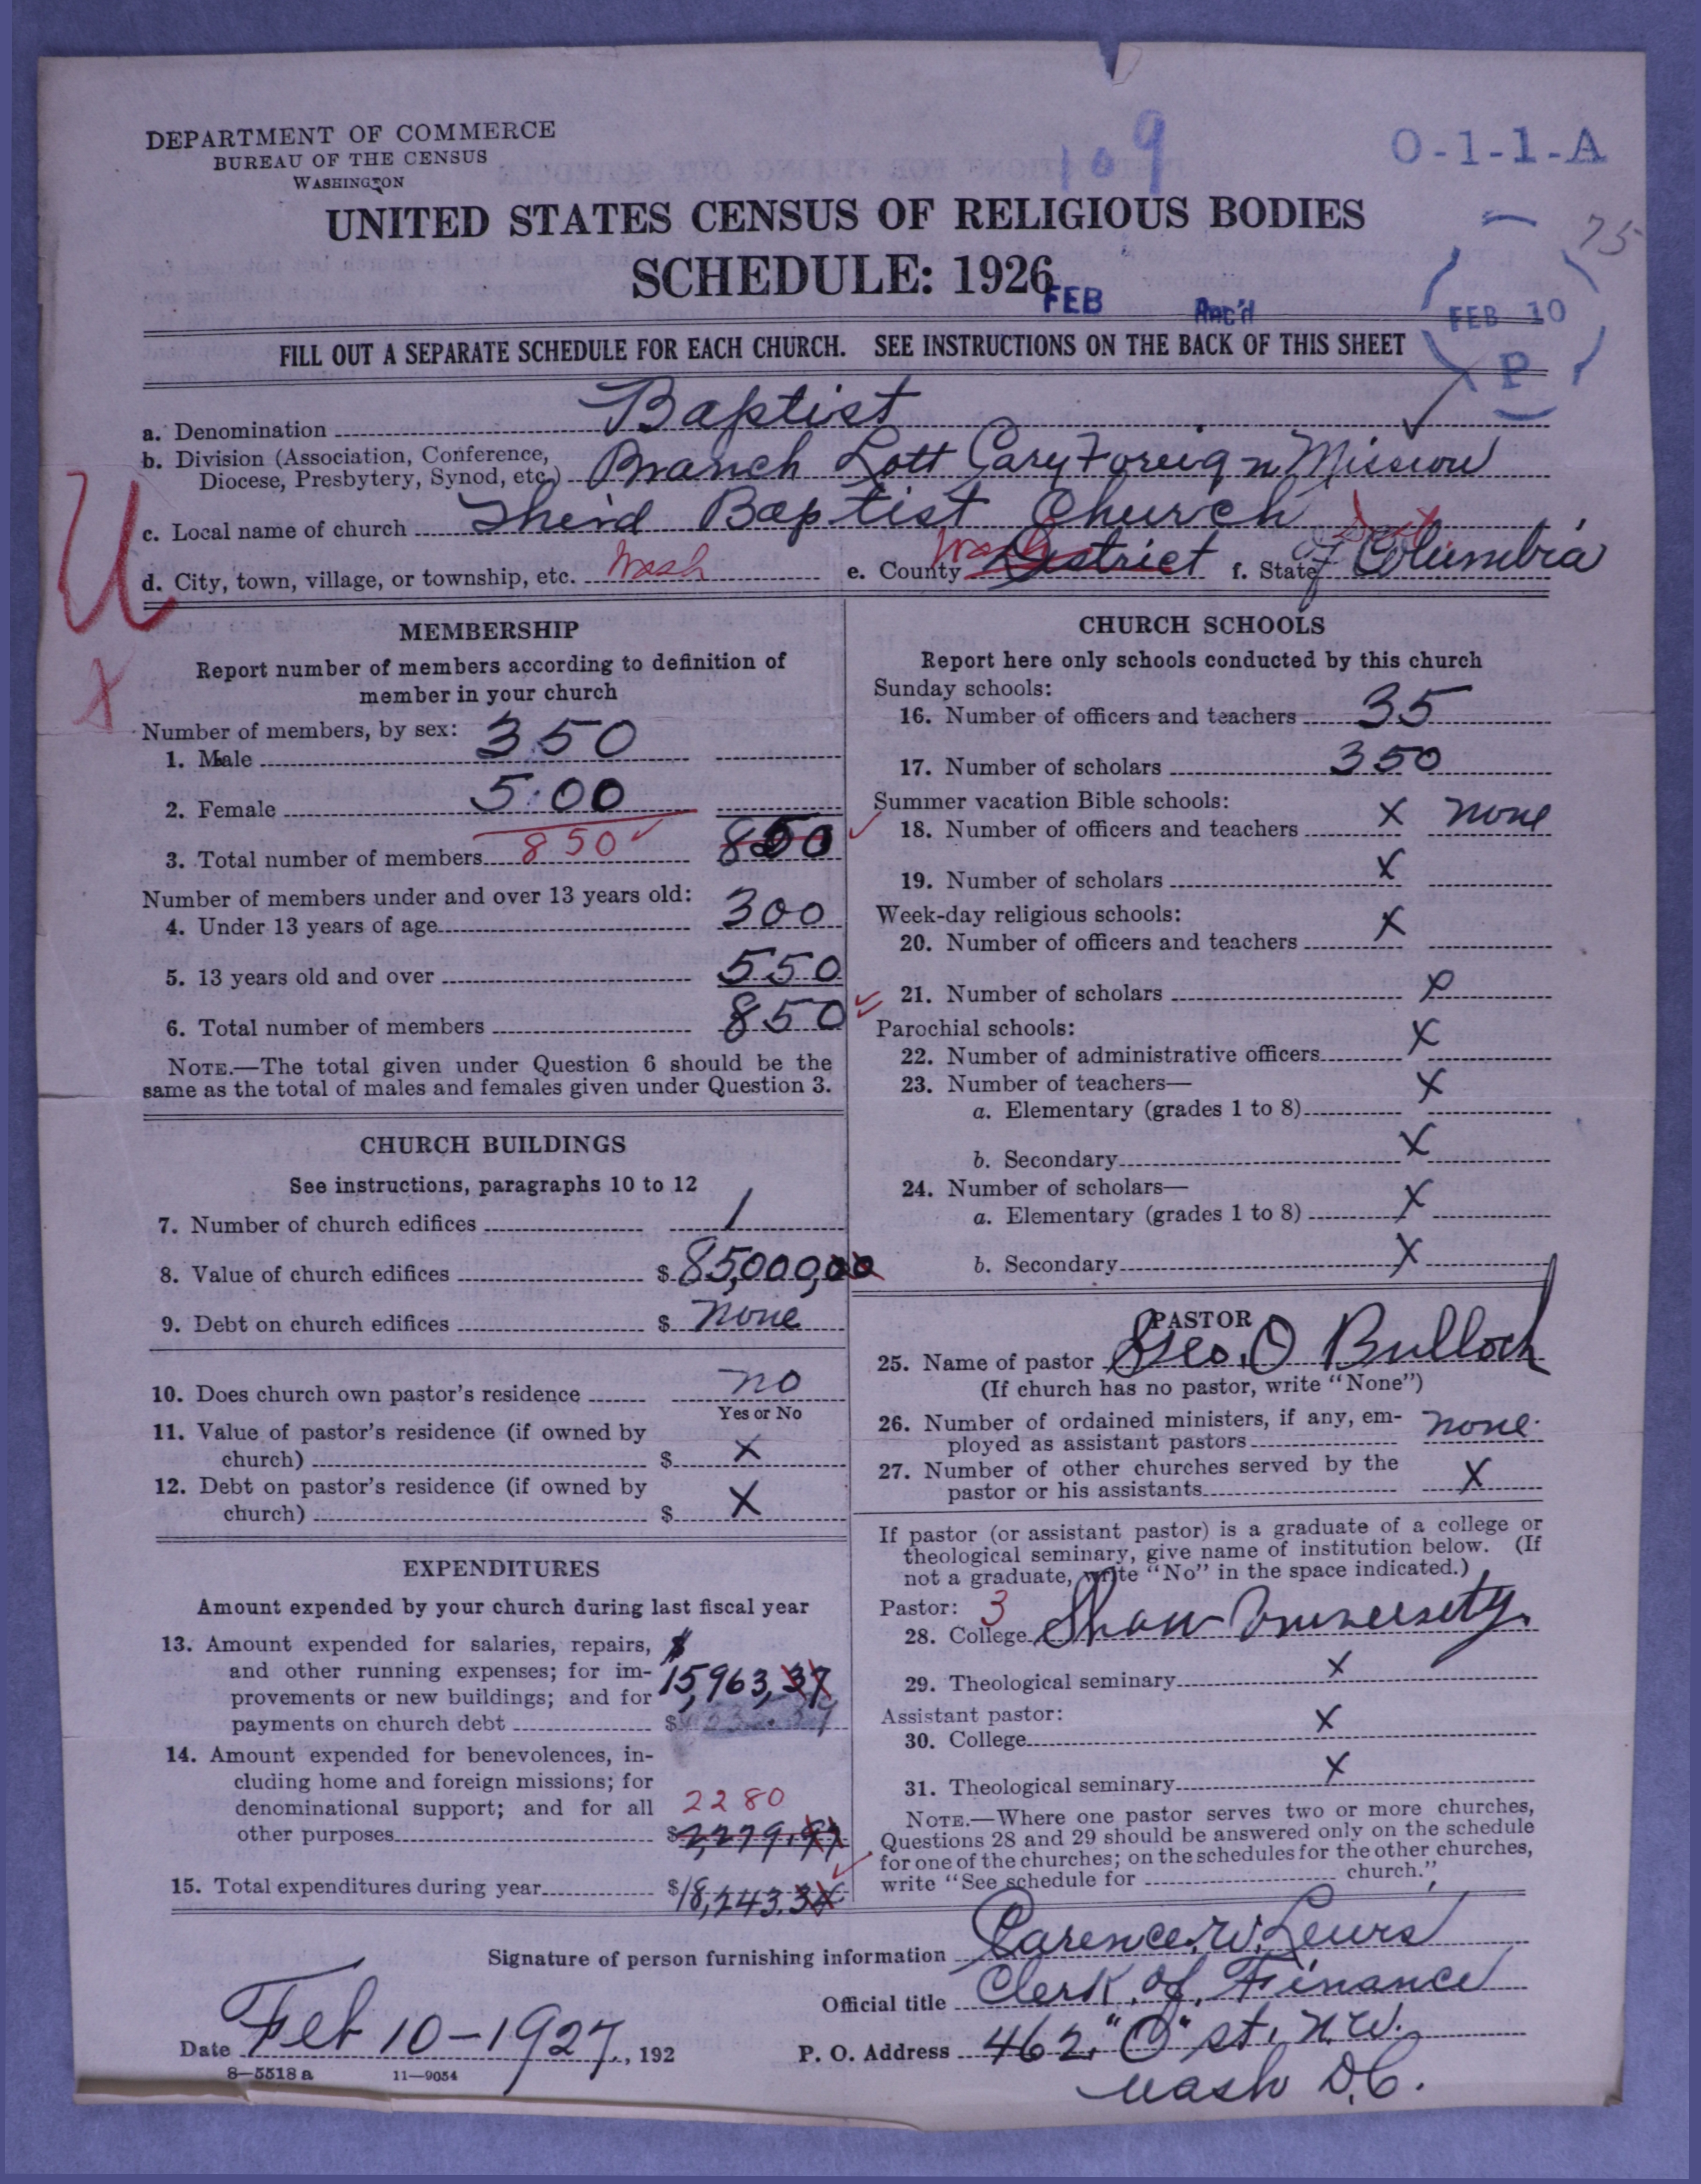 DEPARTMENT OF COMMERCE
BUREAU OF THE CENSUS
WASHINGTON
109
O-1-1-A
UNITED STATES CENSUS OF RELIGIOUS BODIES
75
SCHEDULE: 1926
FEB Rec'd
FEB 10
P
FILL OUT A SEPARATE SCHEDULE FOR EACH CHURCH. SEE INSTRUCTIONS ON THE BACK OF THIS SHEET
a. Denomination Baptist
b. Division (Association, Conference, Diocese, Presbytery, Synod, etc.) Branch Lott Cary Foreign Mission
c. Local name of church Third Baptist Church
d. City, town, village, or township, etc. Wash e. County Wash District f. State of Columbia
U
X
MEMBERSHIP
Report number of members according to definition of
member in your church
Number of members, by sex:
1. Male 350
2. Female 500
3. Total number of members 850 850
Number of members under and over 13 years old:
4. Under 13 years of age 300
5. 13 years old and over 550
6. Total number of members 850
NOTE.—The total given under Question 6 should be the
same as the total of males and females given under Question 3.
CHURCH BUILDINGS
See instructions, paragraphs 10 to 12
7. Number of church edifices 1
8. Value of church edifices $ 85,000,00
9. Debt on church edifices $ None
10. Does church own pastor's residence no
Yes or No
11. Value of pastor's residence (if owned by
church) $ X
12. Debt on pastor's residence (if owned by
church) $ X
EXPENDITURES
Amount expended by your church during last fiscal year
13. Amount expended for salaries, repairs, $
and other running expenses; for im-
provements or new buildings; and for 15,963,37
payments on church debt $
14. Amount expended for benevolences, in-
cluding home and foreign missions; for
denominational support; and for all 2280
other purposes $ 2,279.97
15. Total expenditures during year $ 18,243.34
CHURCH SCHOOLS
Report here only schools conducted by this church
Sunday schools:
16. Number of officers and teachers 35
17. Number of scholars 350
Summer vacation Bible schools:
18. Number of officers and teachers X none
19. Number of scholars X
Week-day religious schools:
20. Number of officers and teachers X
21. Number of scholars X
Parochial schools:
22. Number of administrative officers X
23. Number of teachers—
a. Elementary (grades 1 to 8) X
b. Secondary X
24. Number of scholars—
a. Elementary (grades 1 to 8) X
b. Secondary X
PASTOR
25. Name of pastor Geo. O Bulloch
(If church has no pastor, write "None")
26. Number of ordained ministers, if any, em-
ployed as assistant pastors none.
27. Number of other churches served by the
pastor or his assistants X
If pastor (or assistant pastor) is a graduate of a college or
theological seminary, give name of institution below. (If
not a graduate, write "No" in the space indicated.)
Pastor: 3
28. College Shaw University.
29. Theological seminary X
Assistant pastor:
30. College X
31. Theological seminary X
NOTE.—Where one pastor serves two or more churches,
Questions 28 and 29 should be answered only on the schedule
for one of the churches; on the schedules for the other churches,
write "See schedule for church."
Signature of person furnishing information Clarence. W. Lewis
Official title Clerk. of. Finance
Date Feb 10-1927, 192
P. O. Address 462, "O" st, N.W.
Wash D.C.
8—5518 a 11—9054